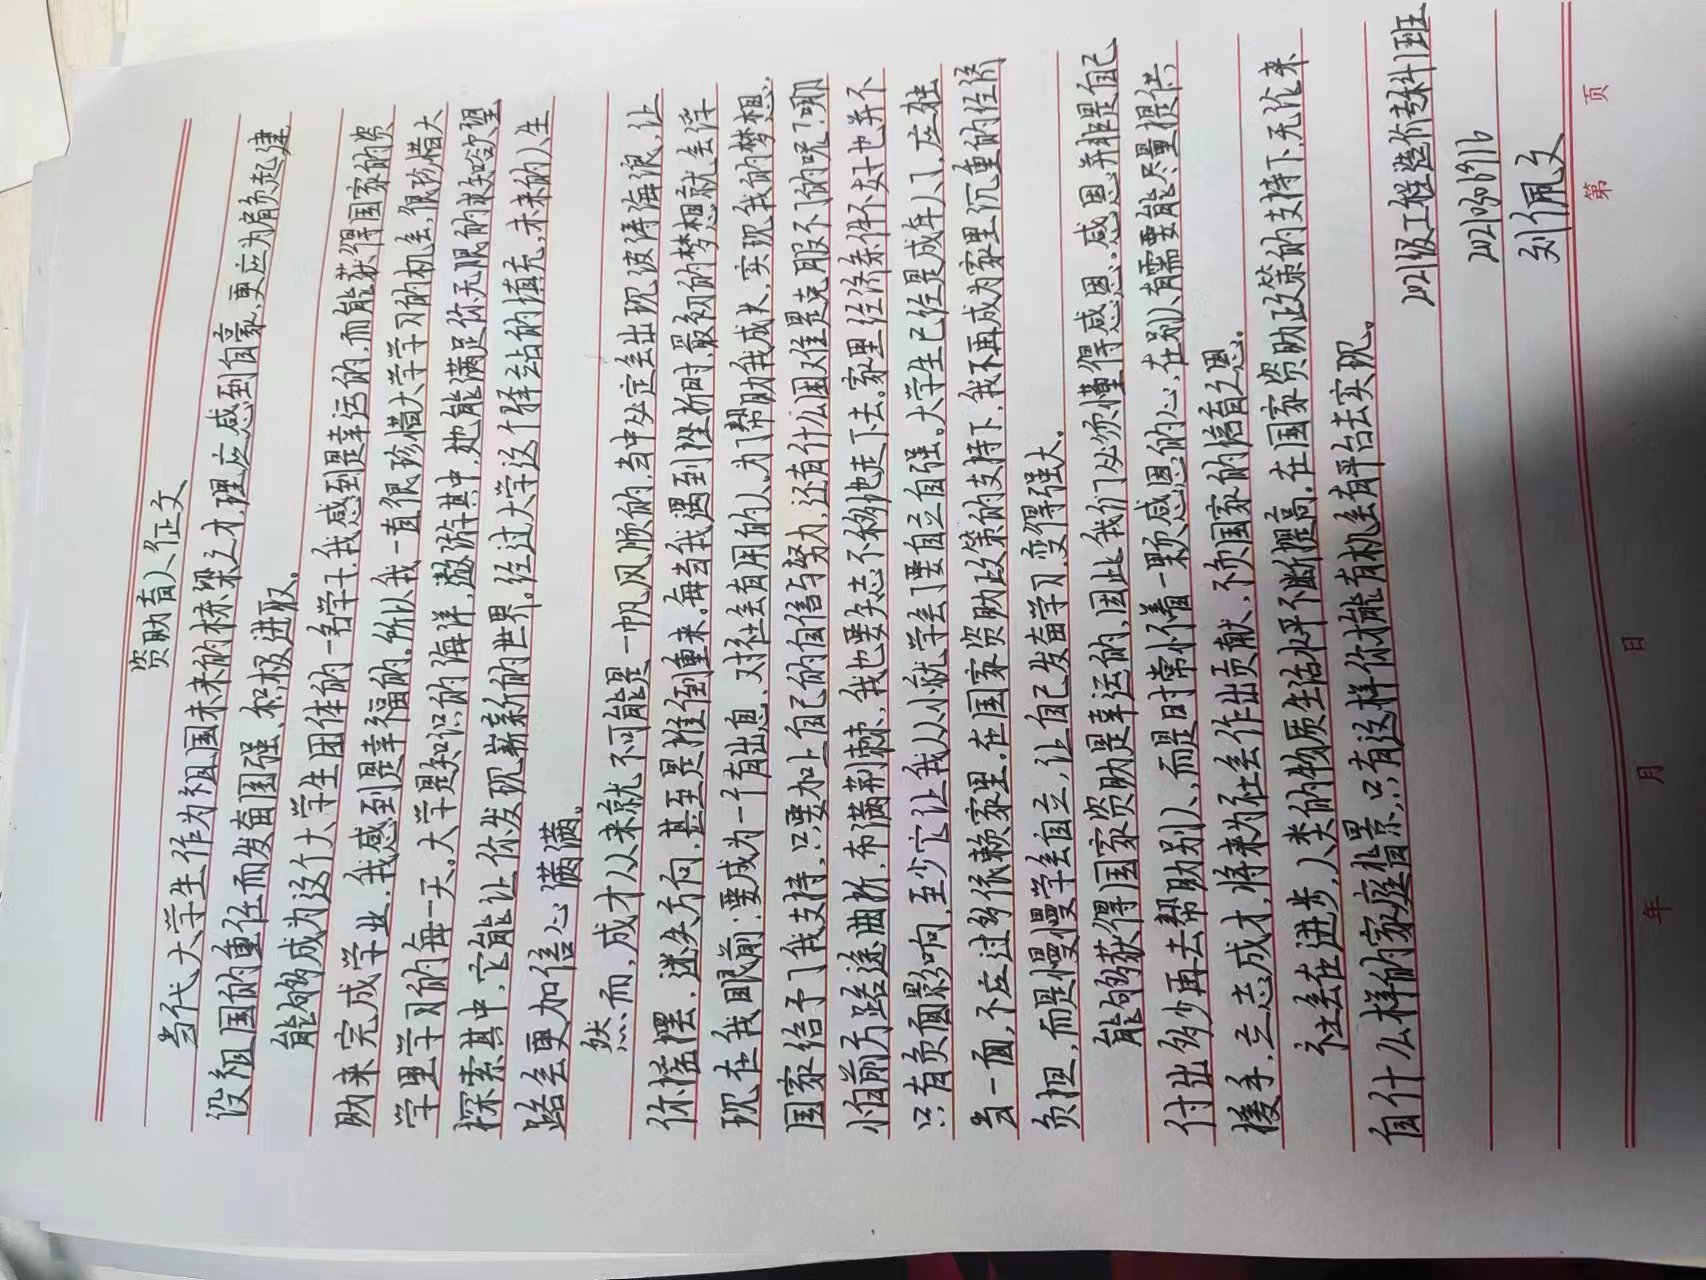 资助育人征文
当代大学生作为祖国未来的栋梁之才,理应感到自豪,更应为肩负起建
设祖国的重任而发奋图强、积极进取。
能够成为这个大学生团体的一名学子,我感到是幸运的,而能获得国家的资
助来完成学业,我感到是幸福的。所以我一直很珍惜大学学习的机会,很珍惜大
学里学习的每一天。大学是知识的海洋,遨游其中,她能满足你无限的求知欲望
探索其中,它能让你发现崭新的世界。经过大学这个驿站的填充,未来的人生
路会更加信心满满。
然而,成才从来就不可能是一帆风顺的,当中必定会出现波涛海浪,让
你摇摆,迷失方向,甚至是推倒重来。每当我遇到挫折时,最初的梦想就会浮
现在我眼前:要成为一个有出息、对社会有用的人。为了帮助我成长,实现我的梦想,
国家给予了我支持,只要加上自己的自信与努力,还有什么困难是克服不了的呢?哪
怕前方路途曲折,布满荆棘,我也要矢志不移地走下去。家里经济条件不好也并不
只有负面影响,至少它让我从小就学会了要自立自强。大学生已经是成年人了,应独
当一面,不应过多依赖家里。在国家资助政策的支持下,我不再成为家里沉重的经济
负担,而是慢慢学会自立,让自己发奋学习,变得强大。
能够获得国家资助是幸运的,因此我们必须懂得感恩。感恩并非是自己
付出多少再去帮助别人,而是时常怀着一颗感恩的心,在别人有需要能尽量提供
援手,立志成才,将来为社会作出贡献,不负国家的培育之恩。
社会在进步,人类的物质生活水平不断提高,在国家资助政策的支持下,无论来
自什么样的家庭背景,只有这样你才能有机会有平台去实现。
2021级工程造价专科1班
刘佩文
年 月 日 第 页